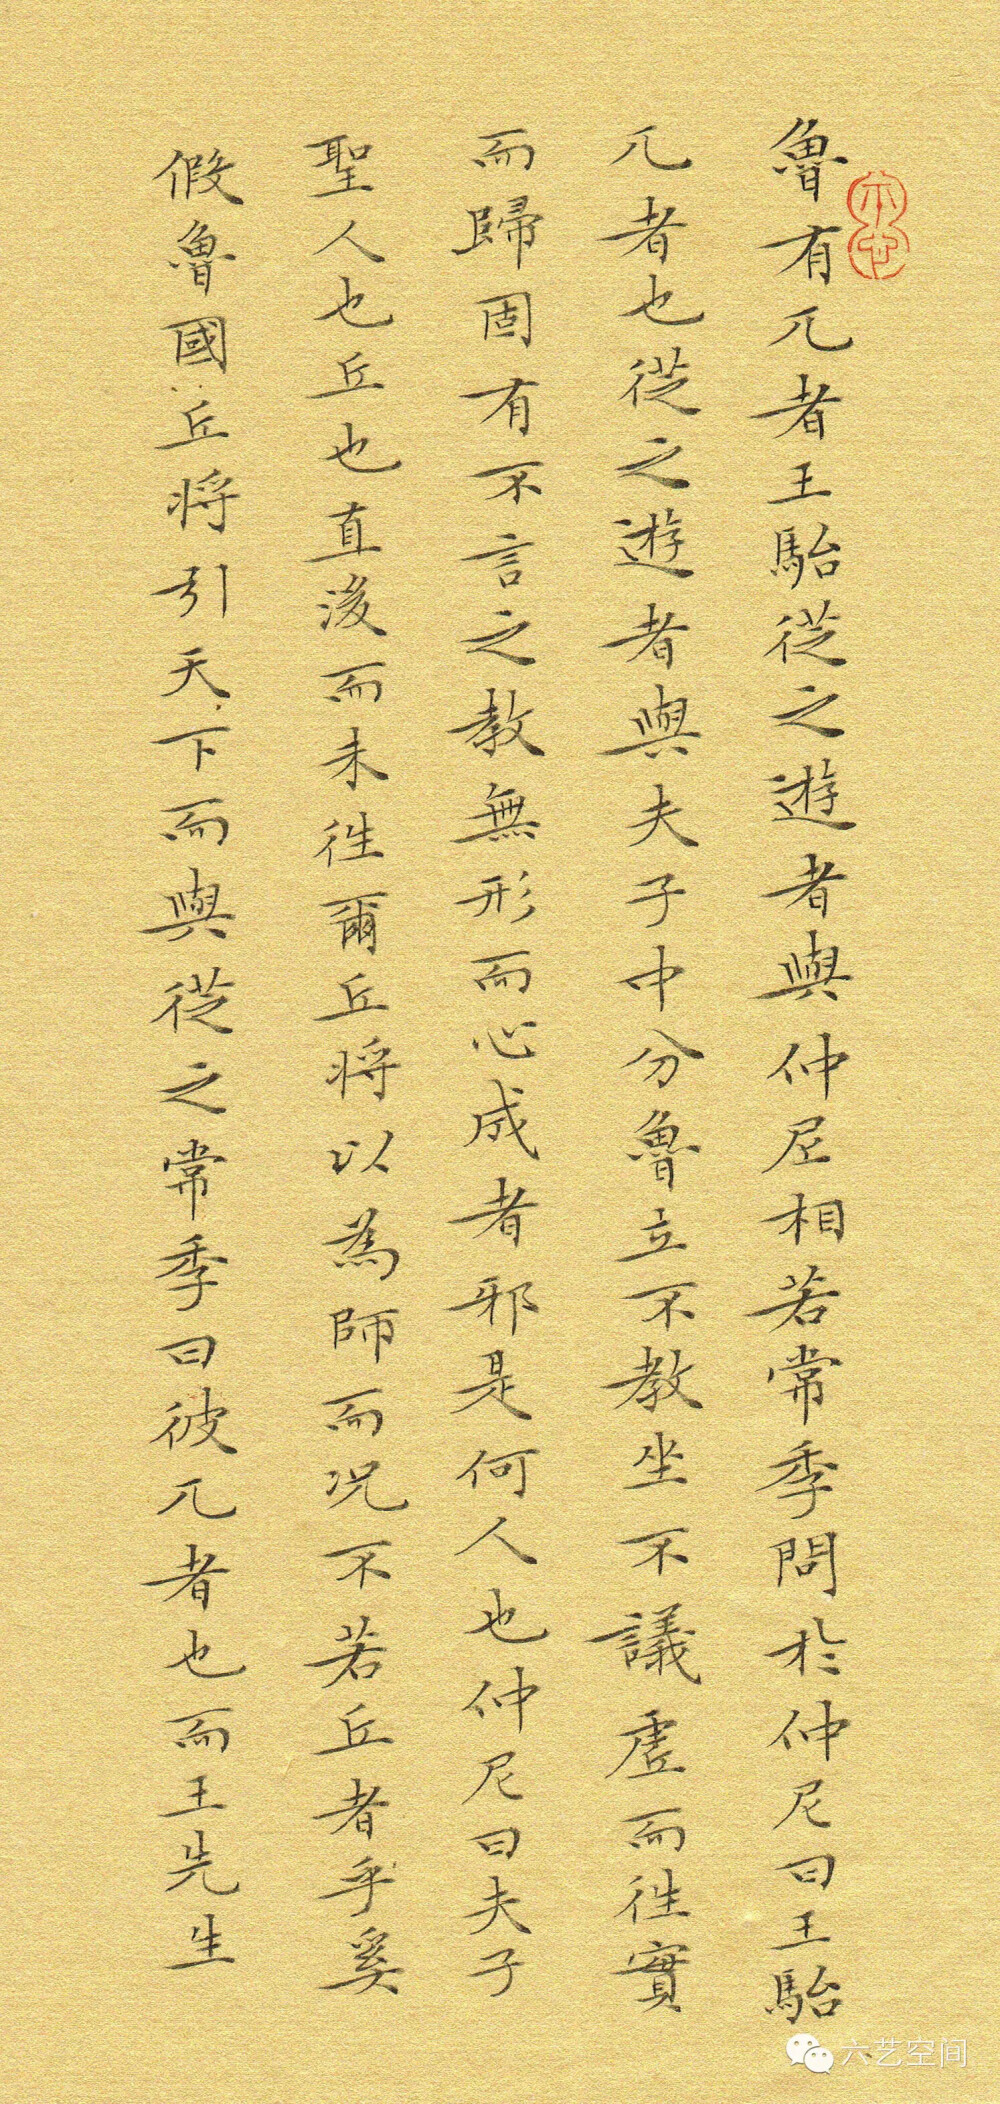 魯有兀者王駘從之遊者與仲尼相若常季問於仲尼曰王駘
兀者也從之遊者與夫子中分魯立不教坐不議虛而往實
而歸固有不言之教無形而心成者邪是何人也仲尼曰夫子
聖人也丘也直後而未往爾丘將以為師而况不若丘者乎奚
假魯國丘將引天下而與從之常季曰彼兀者也而王先生
六艺空间